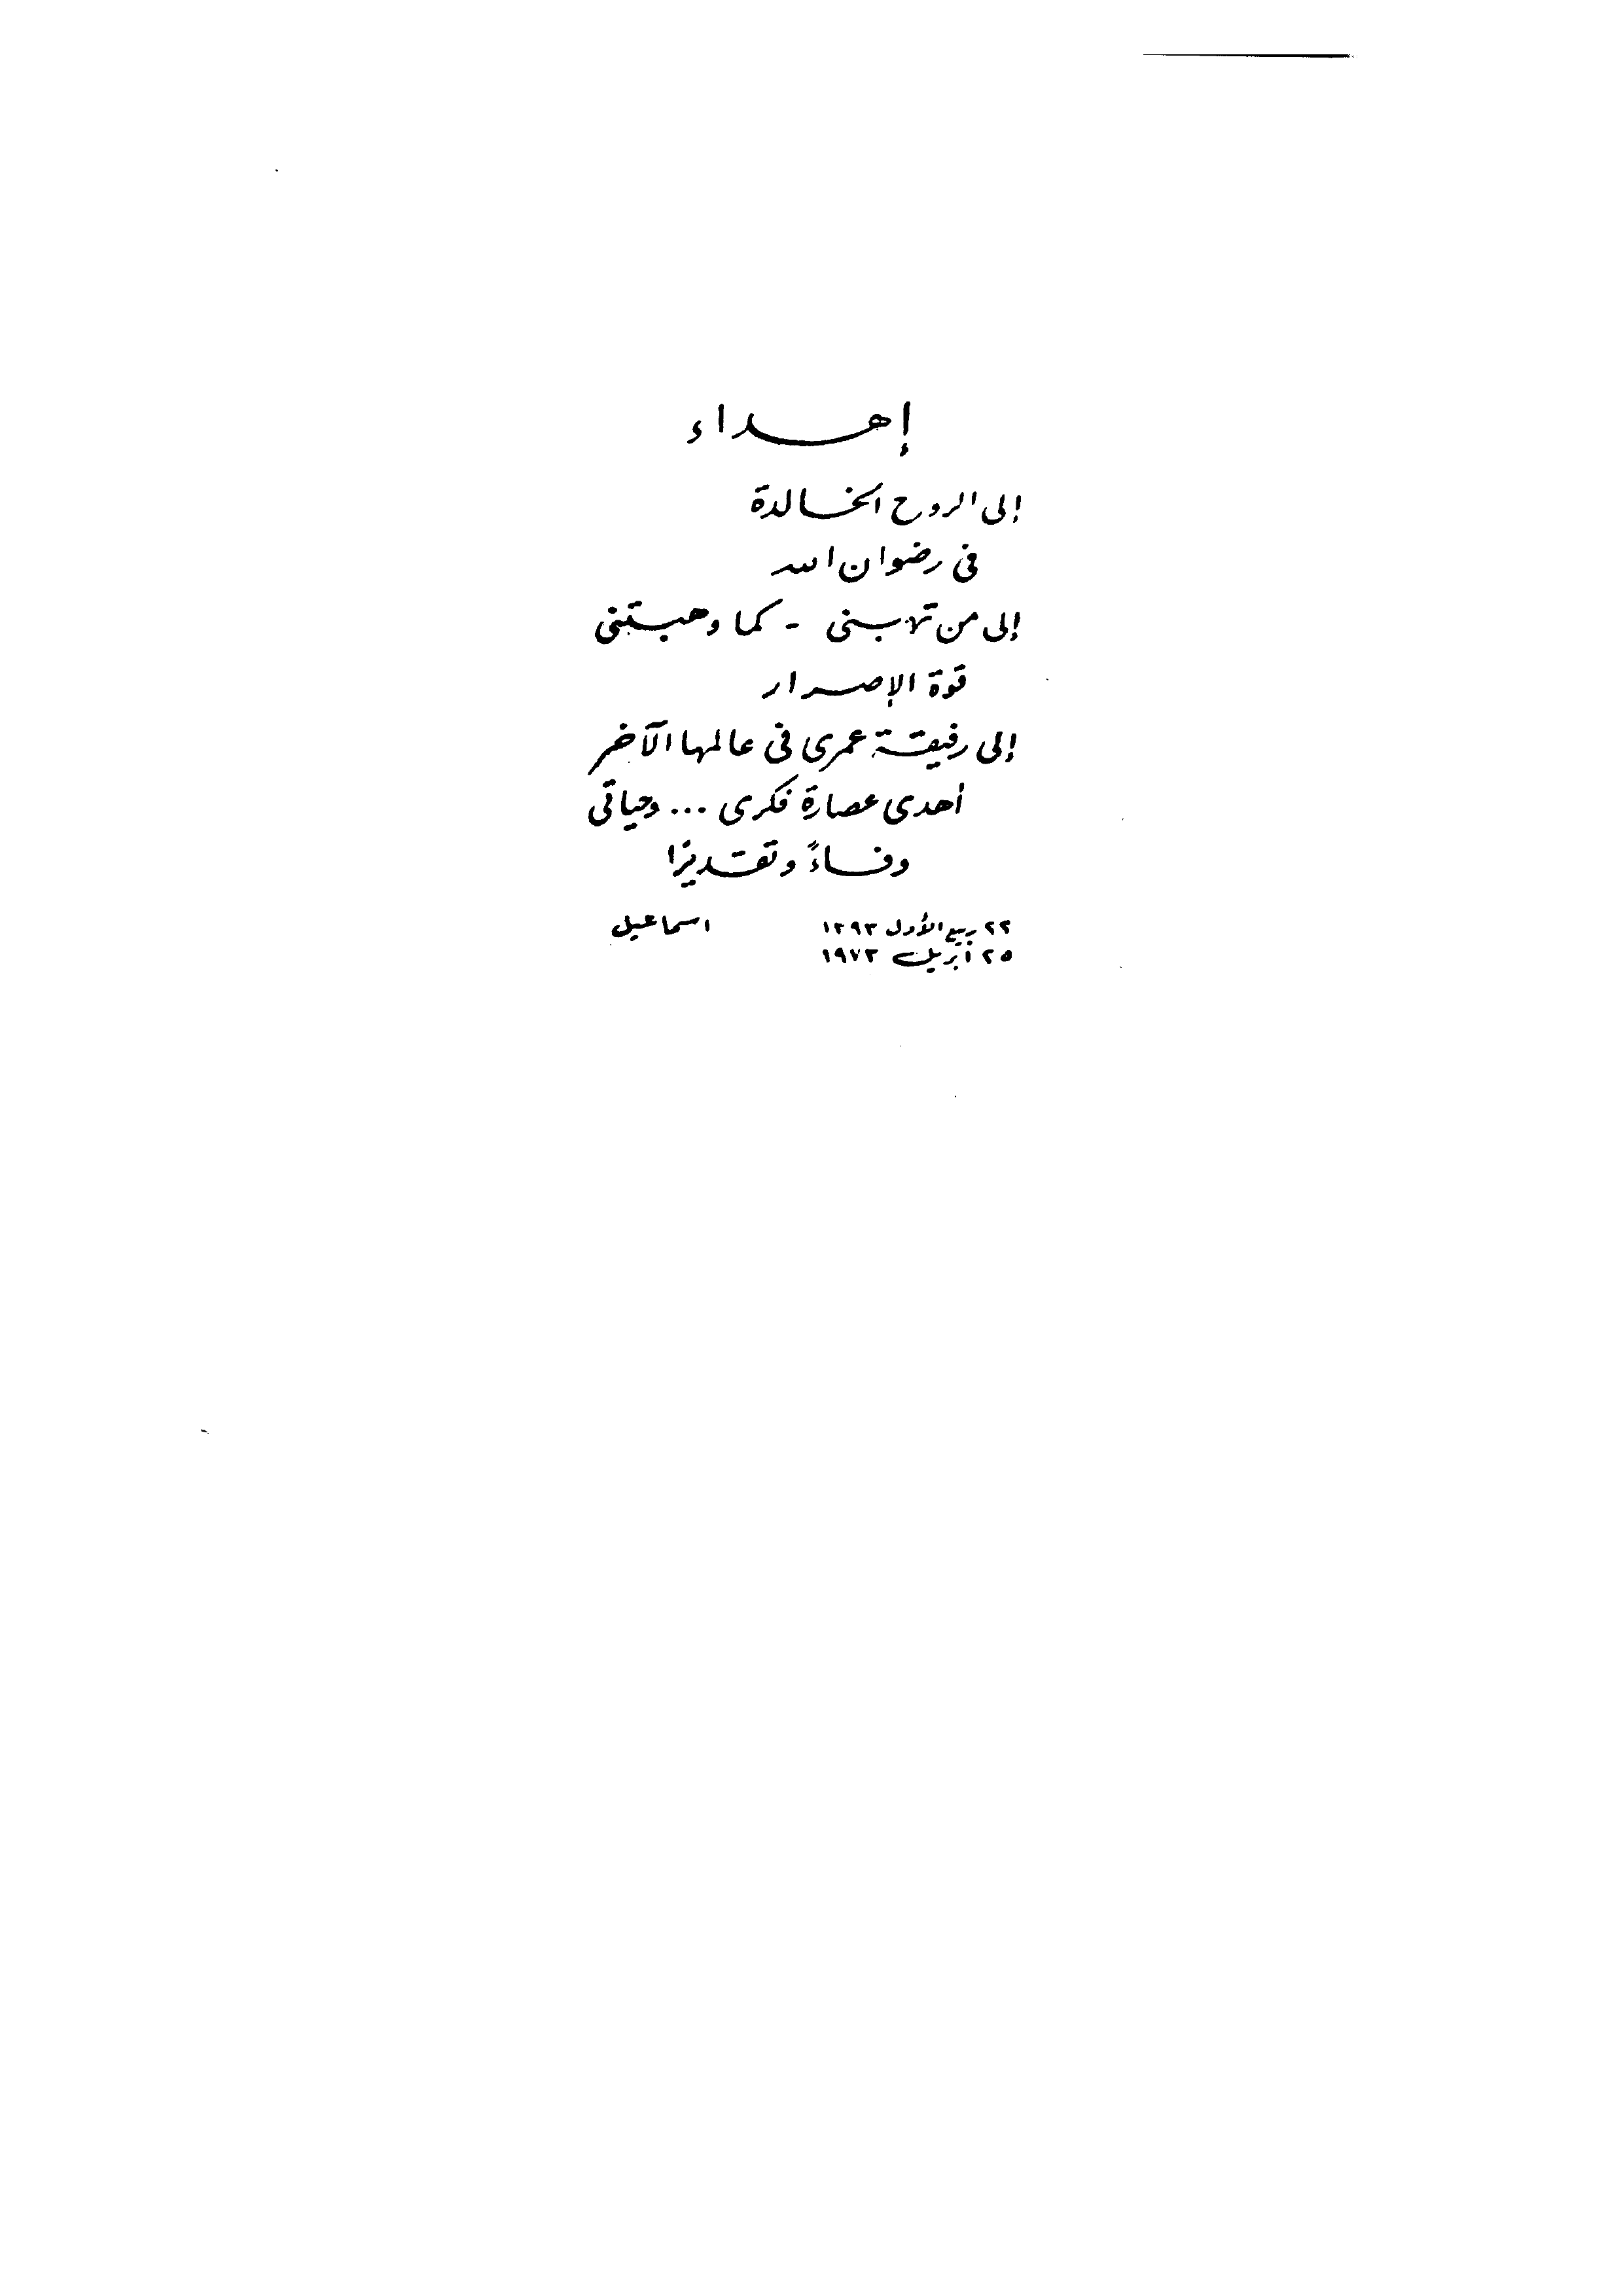 إهداء
إلى الروح الخالدة
فى رضوان الله
إلى من تهبنى - كما وهبتنى
قوة الإصرار
إلى رفيقة عمرى فى عالمها الآخر
أهدى عصارة فكرى ... وحياتى
وفاءً وتقديرًا
٢٢ ربيع الأول ١٣٩٣ اسماعيل
٢٥ أبريل ١٩٧٣